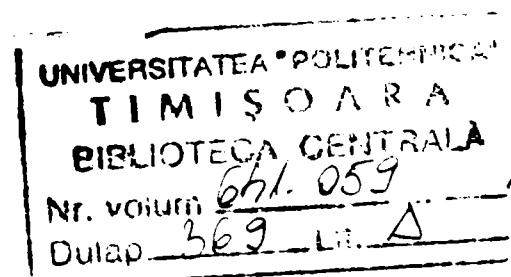 UNIVERSITATEA "POLITEHNICA"
TIMIȘOARA
BIBLIOTECA CENTRALĂ
Nr. volum 641.059
Dulap 369 Lit. A